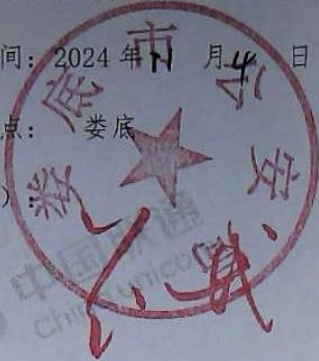 间：2024年11月4日
点：娄底
）：
娄底市公安局
中国联通
China unicom